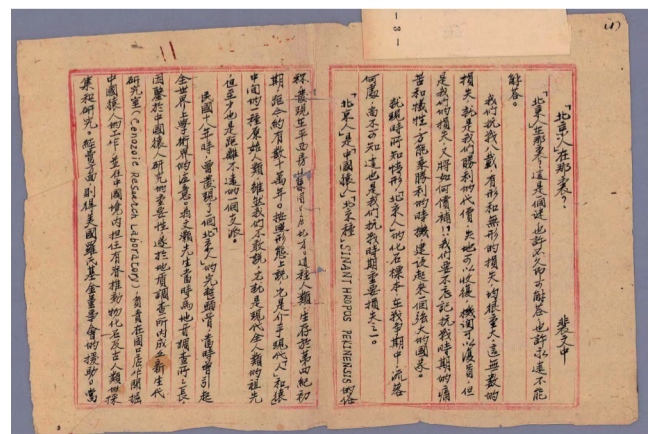 (1)
- 8 -
「北京人」在那裏？
裴文中
「北京人」在那裏？這是個謎，也許不久即可能答，也許永遠不能
解答。
我們抗戰八載，有形和無形的損失，均很重大，這無數的
損失，就是我們勝利的代價，失地可以收復，機關可以復員，但
是我們的損失，又將如何償補！！我們要不忘記抗戰時期的痛
苦和犧牲，方能乘勝利的時機，建設起來一個強大的國家。
就現時所知情形，「北京人」的化石標本，在戰爭期中，流落
何處，尚不可知，這也是我們抗戰時期重要損失之一。
「北京人」是「中國猿人」北京種，SINANTHROPUS PEKINENSIS的俗
稱，發現在平西房山
這種人類生存於第四紀初
期，距今約有數十萬年。按照形態上說，尤是介乎現代「人」和猿
中間的一種原始人類，雖然我們不敢說，尤就是現代全人類的祖先，
但至少也是距離不遠的一個支派。
民國十八年時，曾發現了一個「北京人」的完整頭骨，當時曾引起
全世界上學術界的注意。翁文灝先生當時為地質調查所之長，
因鑒於中國猿人研究的重要性，遂於地質調查所內成立新生代
研究室（Cenozoic Research Laboratory），負責在周口店作開掘
中國猿人的工作，並在中國境內担任有脊推動物化石及古人類的採
集和研究。經費方面，則得美國羅氏基金董事會的援助。當